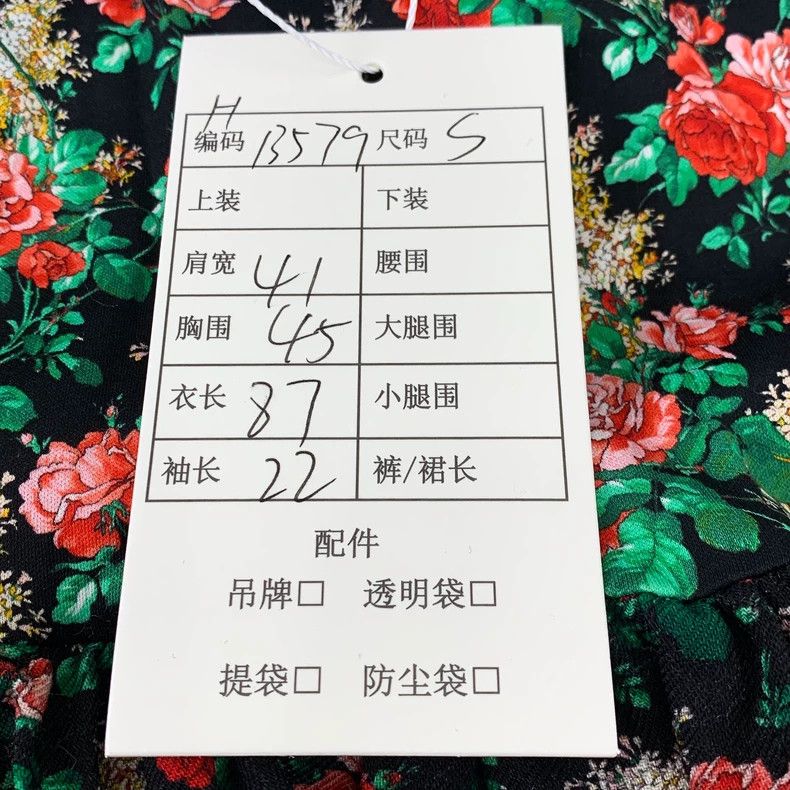 H
编码 13579 尺码 S
上装 下装
肩宽 41 腰围
胸围 45 大腿围
衣长 87 小腿围
袖长 22 裤/裙长
配件
吊牌□ 透明袋□
提袋□ 防尘袋□